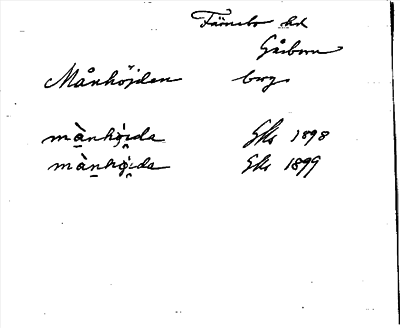 Färnebo hd
Gåsborn
Månhöjden berg
mànhö̀ida Gks 1898
mànhö̀ida Gks 1899